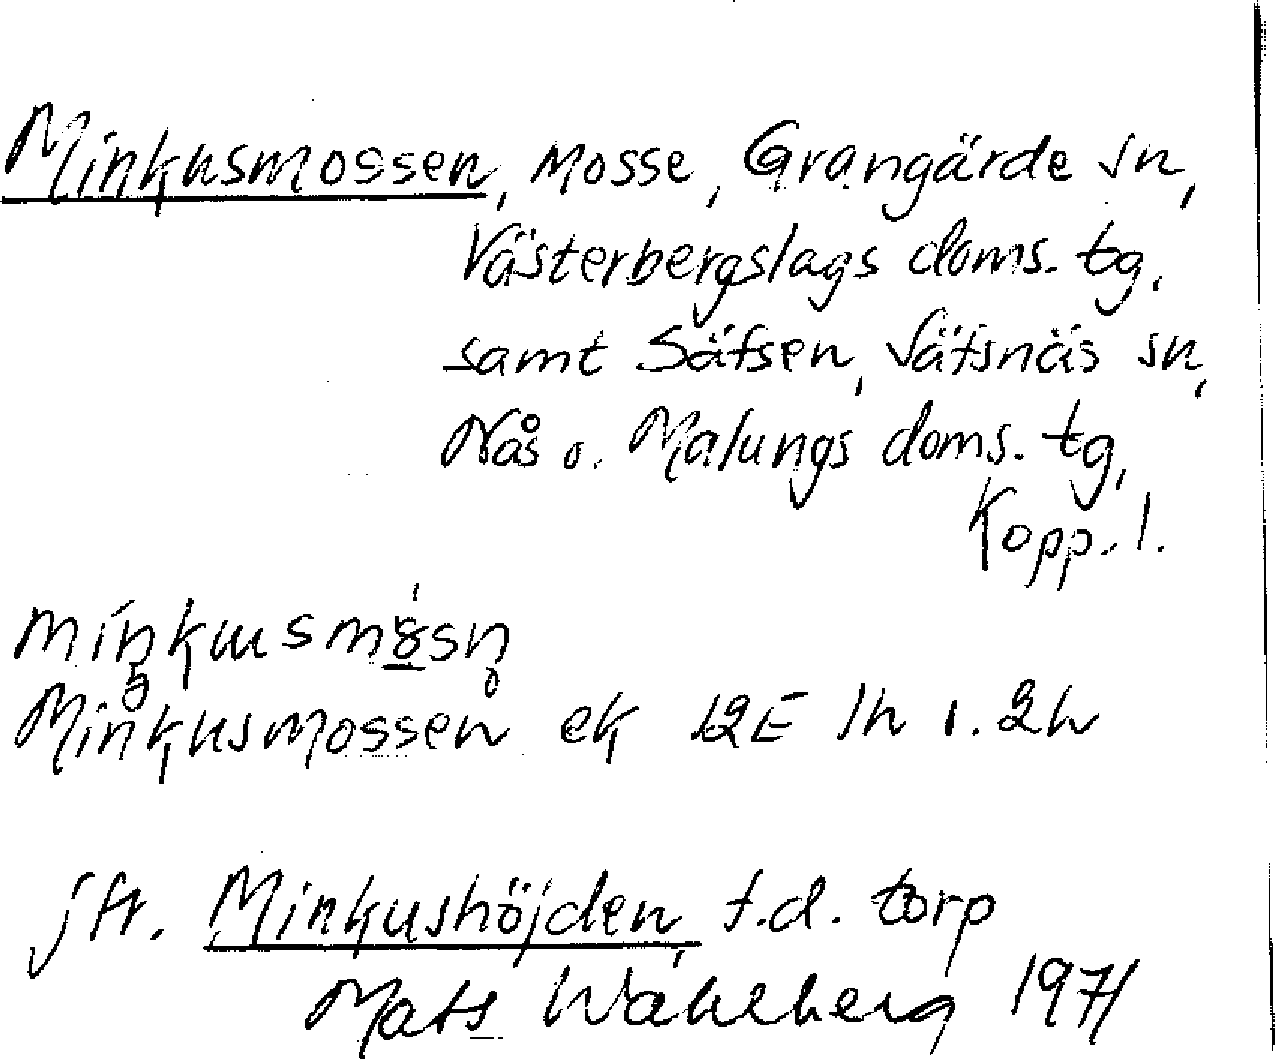 Minkusmossen, mosse, Grangärde sn,
Västerbergslags doms. tg,
samt Säfsen, Säfsnäs sn,
Nås o. Malungs doms. tg,
Kopp. l.
Minkusmossen ek 12E 1h o. 2h
jfr. Minkushöjden, f.d. torp
Mats Wahlberg 1971